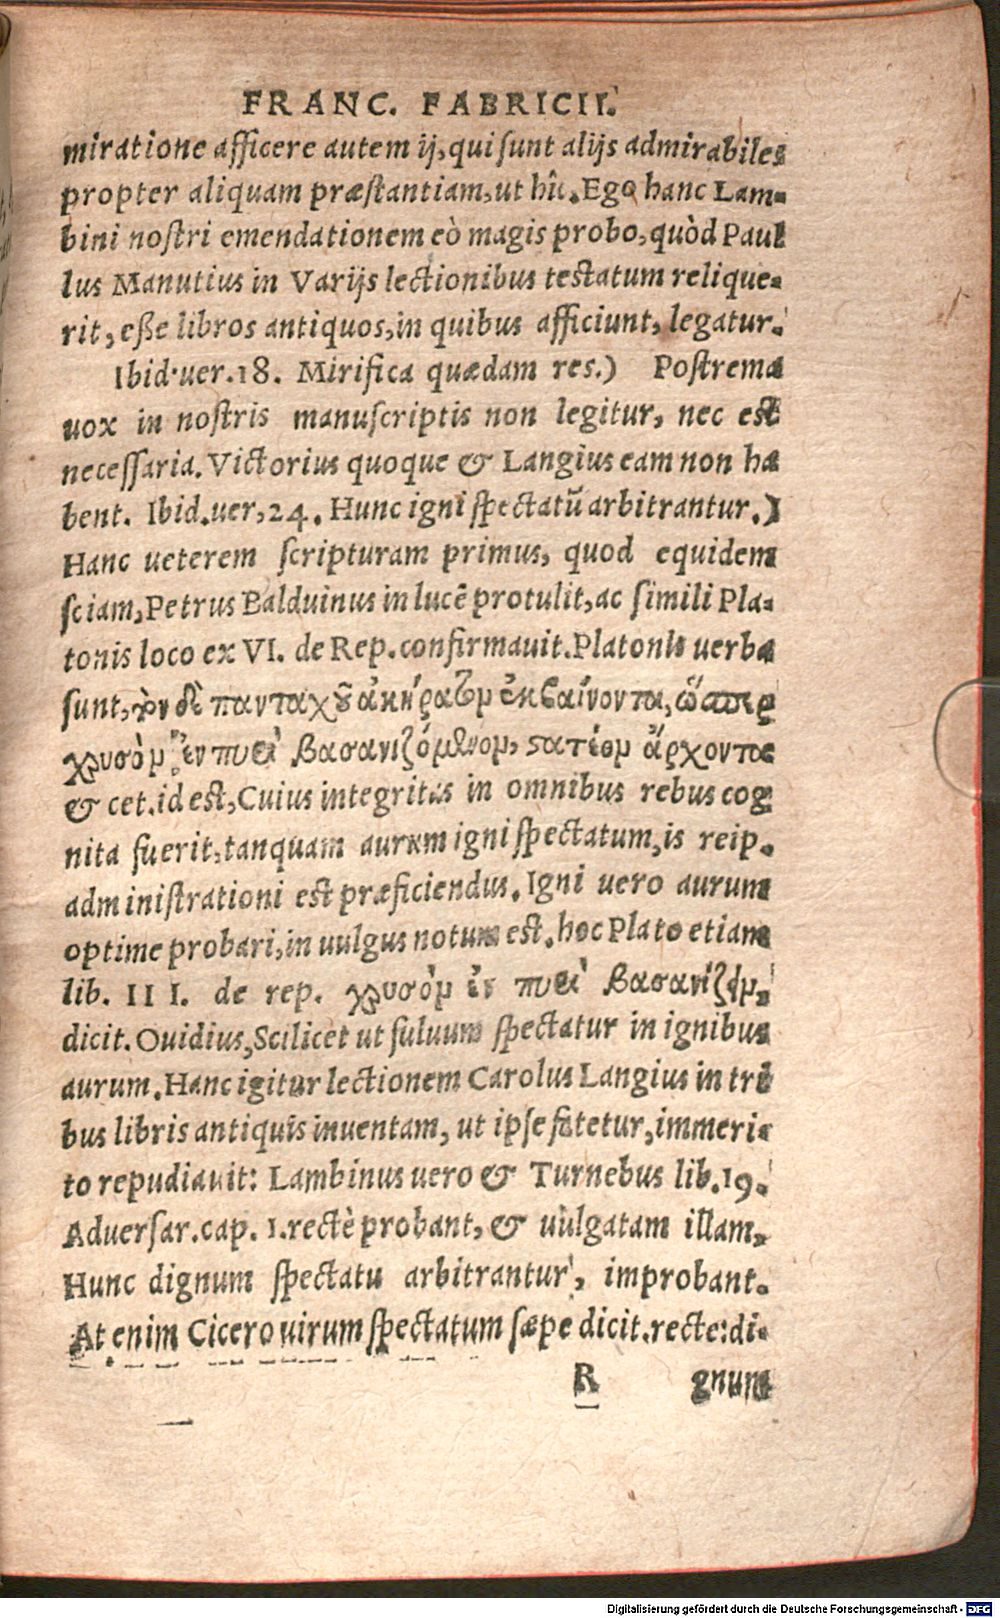 FRANC. FABRICII.
miratione afficere autem ij, qui sunt alijs admirabiles
propter aliquam præstantiam, ut hîc. Ego hanc Lam-
bini nostri emendationem eò magis probo, quòd Paul
lus Manutius in Varijs lectionibus testatum relique-
rit, esse libros antiquos, in quibus afficiunt, legatur.
Ibid. uer. 18. Mirifica quædam res.) Postrema
uox in nostris manuscriptis non legitur, nec est
necessaria. Victorius quoque & Langius eam non ha
bent. Ibid. uer, 24. Hunc igni spectatũ arbitrantur.)
Hanc ueterem scripturam primus, quod equidem
sciam, Petrus Balduinus in lucẽ protulit, ac simili Pla-
tonis loco ex VI. de Rep. confirmauit. Platonis uerba
sunt, τὸν δὲ πανταχοῦ ἀκήρατον ἐκβαίνοντα, ὥσπερ
χρυσὸν ἐν πυρὶ βασανιζόμενον, στατέον ἄρχοντα
& cet. id est, Cuius integritas in omnibus rebus cog
nita fuerit, tanquam aurum igni spectatum, is reip.
administrationi est præficiendus. Igni uero aurum
optime probari, in uulgus notum est. hoc Plato etiam
lib. III. de rep. χρυσὸν ἐν πυρὶ βασανίζειν,
dicit. Ouidius, Scilicet ut fuluum spectatur in ignibus
aurum. Hanc igitur lectionem Carolus Langius in tri
bus libris antiquis inuentam, ut ipse fatetur, immeri-
to repudiauit: Lambinus uero & Turnebus lib. 19.
Aduersar. cap. 1. rectè probant, & uulgatam illam,
Hunc dignum spectatu arbitrantur, improbant.
At enim Cicero uirum spectatum sæpe dicit. recte: di-
R gnum
Digitalisierung gefördert durch die Deutsche Forschungsgemeinschaft - DFG